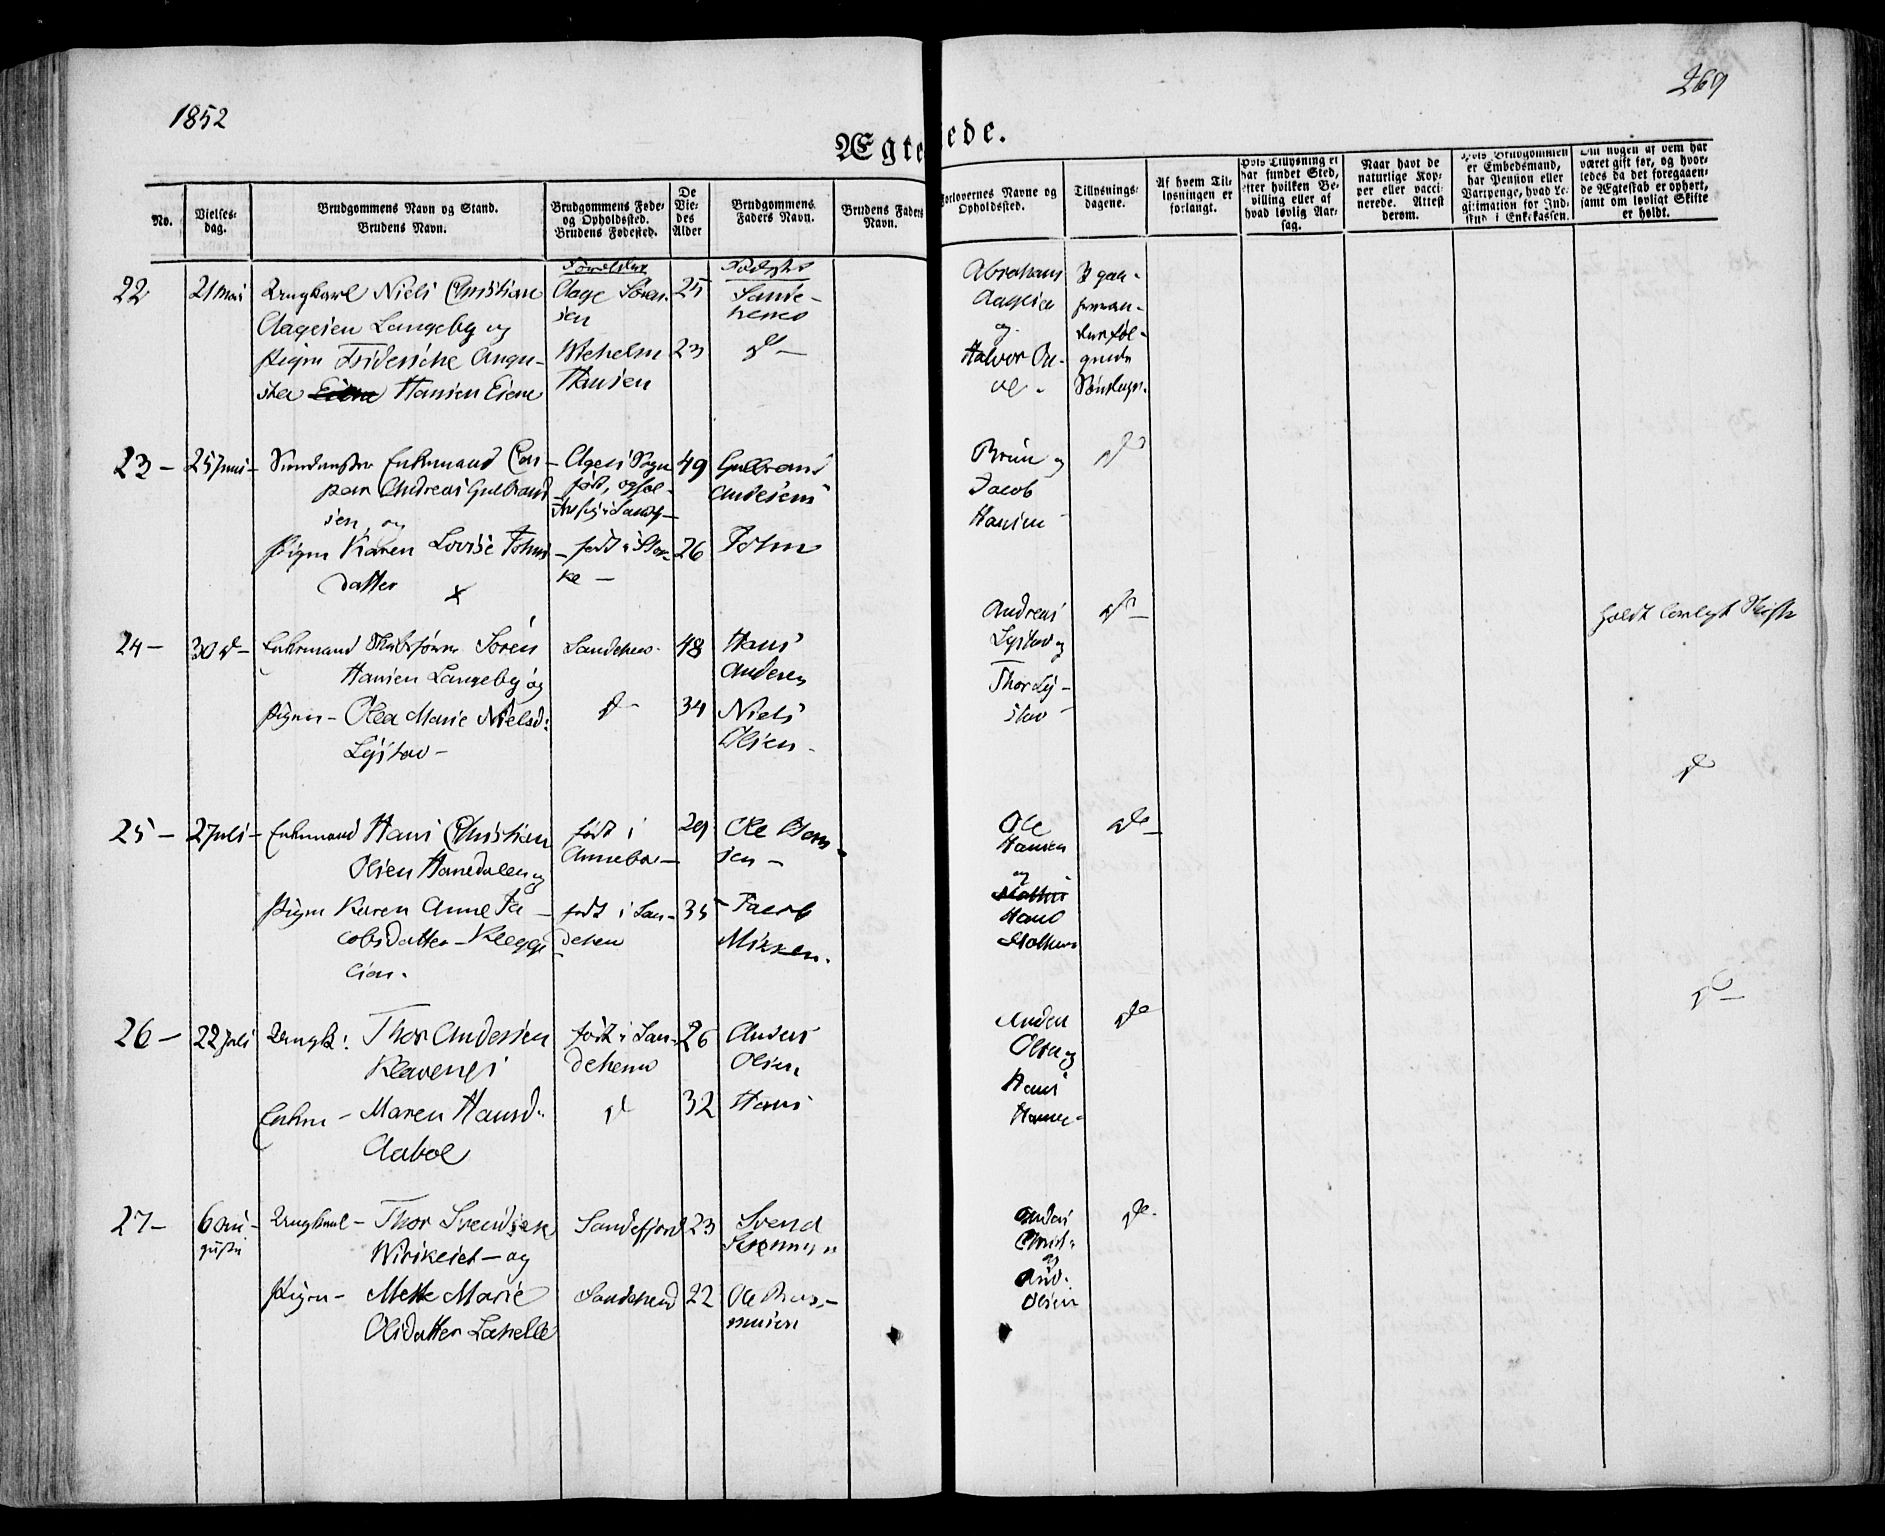 1852
269
Ægte
iede.
No.
Vielses-
dag.
Brudgommens Navn og Stand.
Brudens Navn.
Brudgommens Føde-
og Opholdssted.
Brudens Fødested.
De
Vie-
des
Alder
Brudgommens
Faders Navn.
Brudens Faders
Navn.
Forlovernes Navne og
Opholdssted.
Tillysnings-
dagene.
Af hvem Til-
lysningen er
forlangt.
Hvis Tillysning ei
har fundet Sted,
efter hvilken Be-
villing eller af
hvad lovlig Aar-
sag.
Naar havt de
naturlige Kop-
per eller vacci-
nerede. Attest
derom.
Hvis Brudgommen
er Embedsmand,
har Pension eller
Vartpenge, hvad Le-
gitimation for Ind-
skud i Enkekassen.
Om nogen af dem har
været gift før, og hvor-
ledes da det foregaaen-
de Ægteskab er ophørt,
samt om lovligt Skifte
er holdt.
22
21 Mai
Ungkarl Niels Christian
Aagesen Langeby og
Pigen Friderikke Augu-
sta Hansen Eiene
Forældre
Aage Søren-
sen
Wilhelm
Hansen
25
23
Fødested
Sande-
herred
Abraham
Aagesen
og
Halvor
3 gan-
følgende
23 -
25 Juni -
Enkemand Cas-
par Andreas Gulbrand
sen og
Pigen Karen Lovise Johns
datter
X
Sogn
født,
- født i Sto-
ke -
49
26
Gulbrand
Andersens
John
Bruun og
Jacob
Hansen
do
24 -
30 d -
Enkemand Søren
Hansen Langeby og
Pigen - Olea Marie Nielsd:
Lystav -
Sandeherr.
do -
48
34
Hans
Anders
Niels
Olsen -
Andreas
Lystav og
Thor Ly-
stav
do -
holdt lovligt Skifte
do
25 -
2 Juli -
Enkemand Hans Christian
Olsen Hanedalen og
Pigen Karen Anne Ja -
cobsdatter -
født i
Annebo -
født i San-
deherr
29
35
Ole
sen -
Jacob
Mikkels.
Ole
Hansen
og
Hans
do -
do -
26 -
22 Juli
Ungk: Thor Andersen
Klavenes
Enken - Maren Hansd:
Aabol
født i San-
deherred
do
26
32
Anders
Olsen
Hans
Anders
Olsen og
Hans
do
27 -
6 Au-
gusti
Ungkarl - Thor Svendsen
Virikeiet - og
Pigen - Mette Marie
Olsdatter Lahelle
Sandefjord
Sandeherred
23
22
Svend
Ole Ras-
musen
Anders
Christ:
og
And.
Olsen
do -